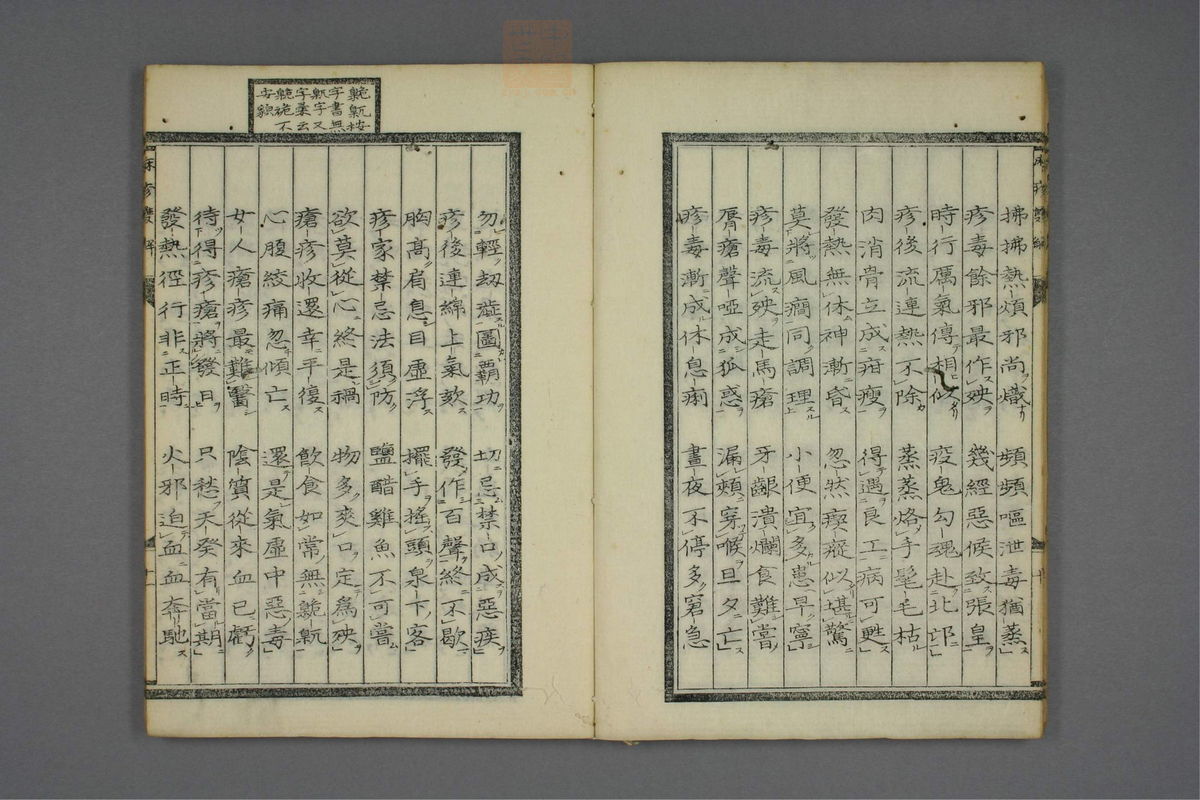 拂拂熱煩邪尚熾 頻頻嘔泄毒猶蒸
疹毒餘邪最作殃 幾經惡候致張皇
時行厲氣傳相似 疫鬼勾魂赴北邙
疹後流連熱不除 蒸蒸烙手髦毛枯
肉消骨立成疳瘦 得遇良工病可甦
發熱無休神漸昏 忽然瘛瘲似堪驚
莫將風癎同調理 小便宜多患早寧
疹毒流殃走馬瘡 牙齦潰爛食難嘗
脣瘡聲啞成狐惑 漏頰穿喉旦夕亡
疹毒漸成休息痢 晝夜不停多窘急
勿輕劫澁圖霸功 切忌禁口成惡疾
疹後連綿上氣欬 發作百聲終不歇
胸高肩息目虛浮 擺手搖頭泉下客
疹家禁忌法須防 鹽醋雞魚不可嘗
欲莫從心終是禍 物多爽口定爲殃
瘡疹收還幸平復 飲食如常無𪖎𪖌
心腹絞痛忽傾亡 還是氣虛中惡毒
女人瘡疹最難醫 陰質從來血已虧
待得疹瘡將發日 只愁天癸有當期
發熱徑行非正時 火邪迫血血奔馳